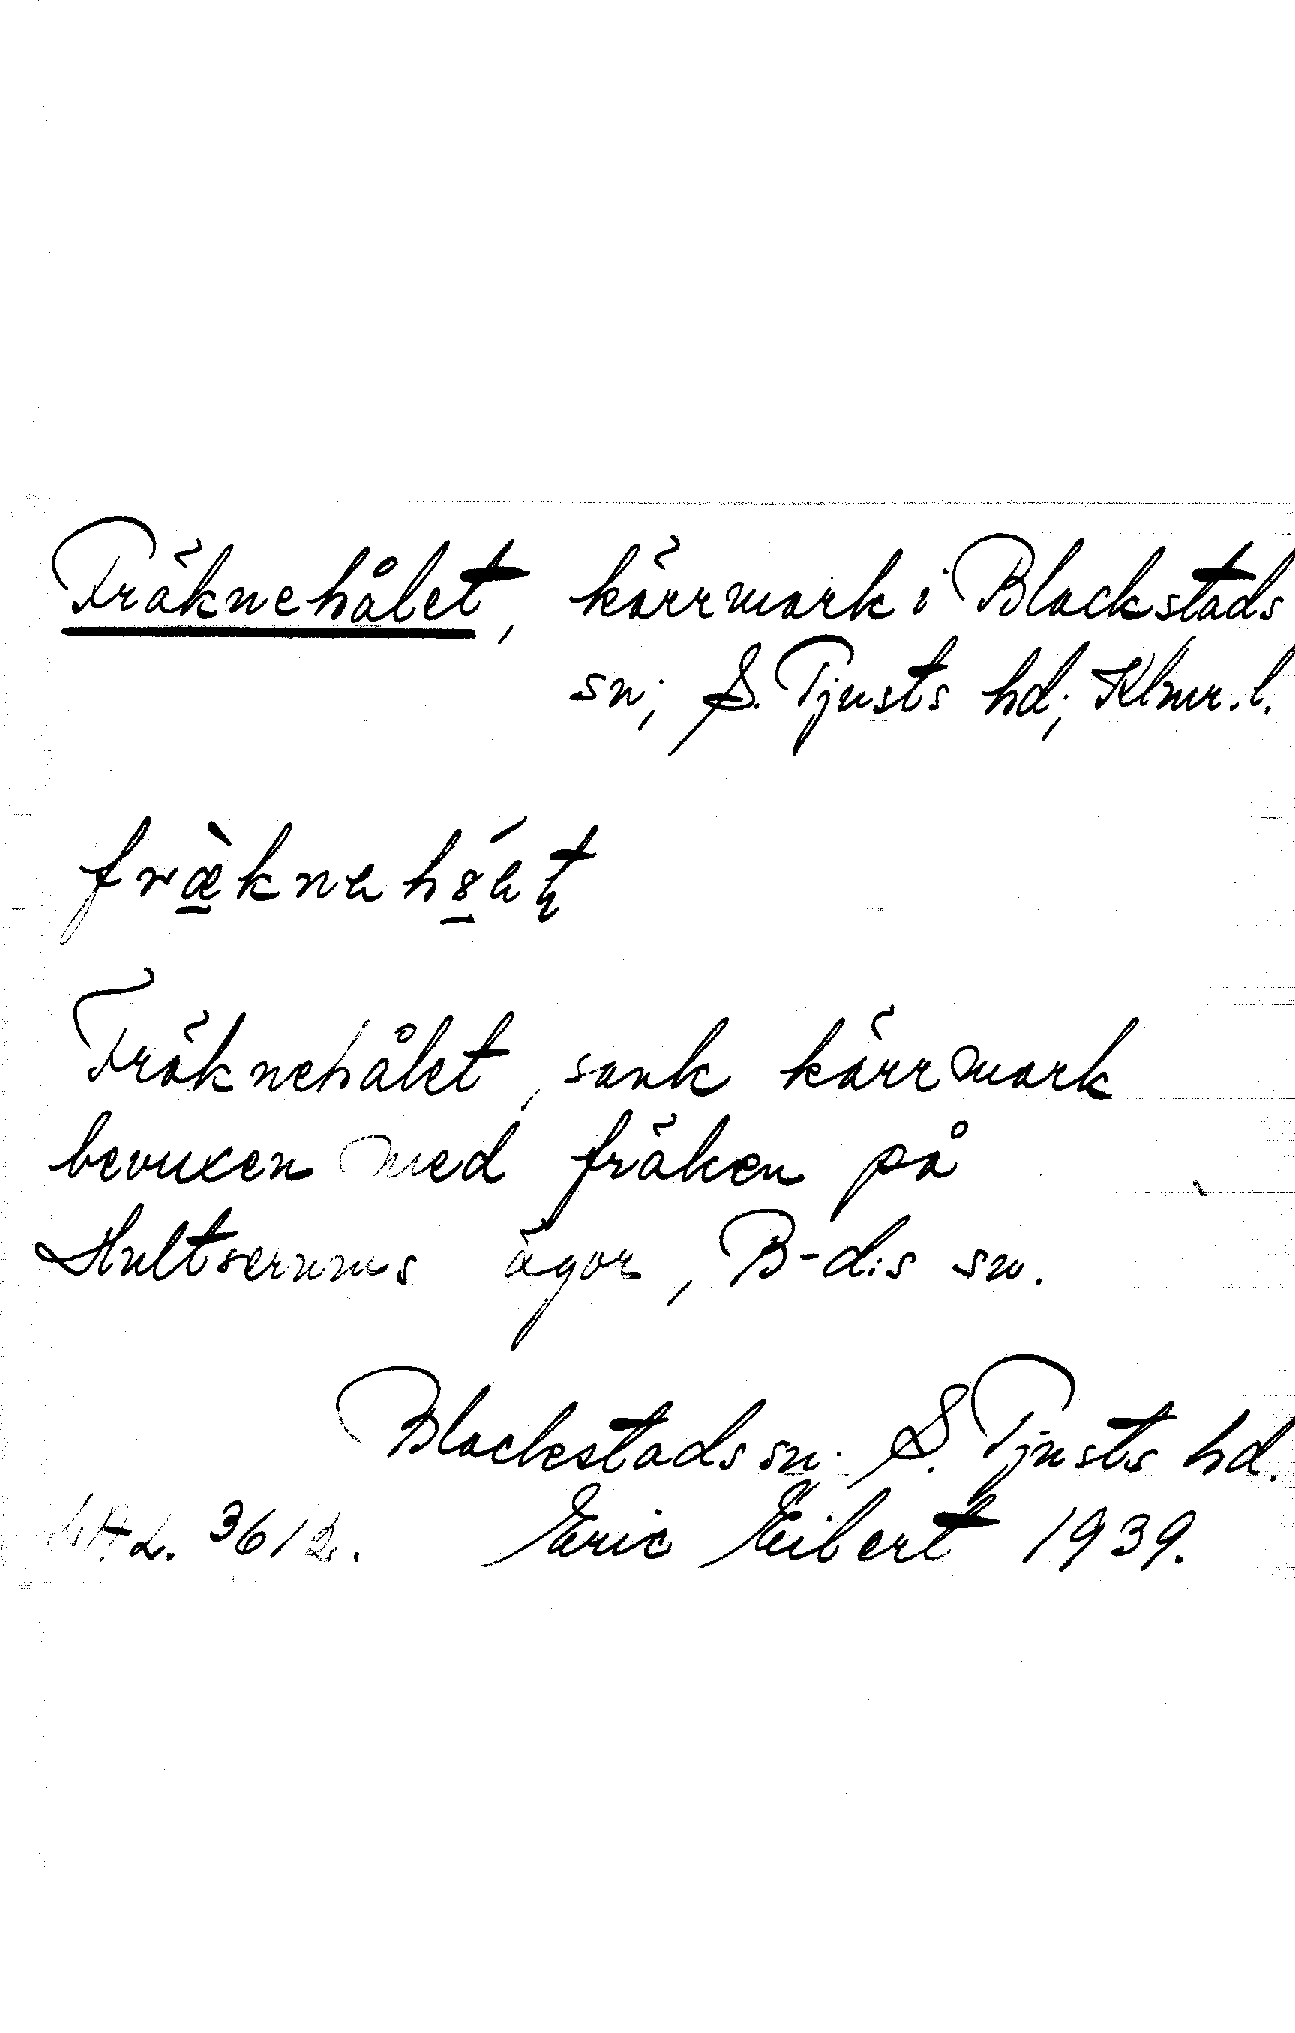 Fräknehålet, kärrmark i Blackstads
sn; S. Tjusts hd; Klmr. l.
Fräknehålet, sank kärrmark
bevuxen med fräken på
Hultserums ägor, B-d:s sn.
Blackstads sn. S. Tjusts hd.
3612. Eric Eibert 1939.